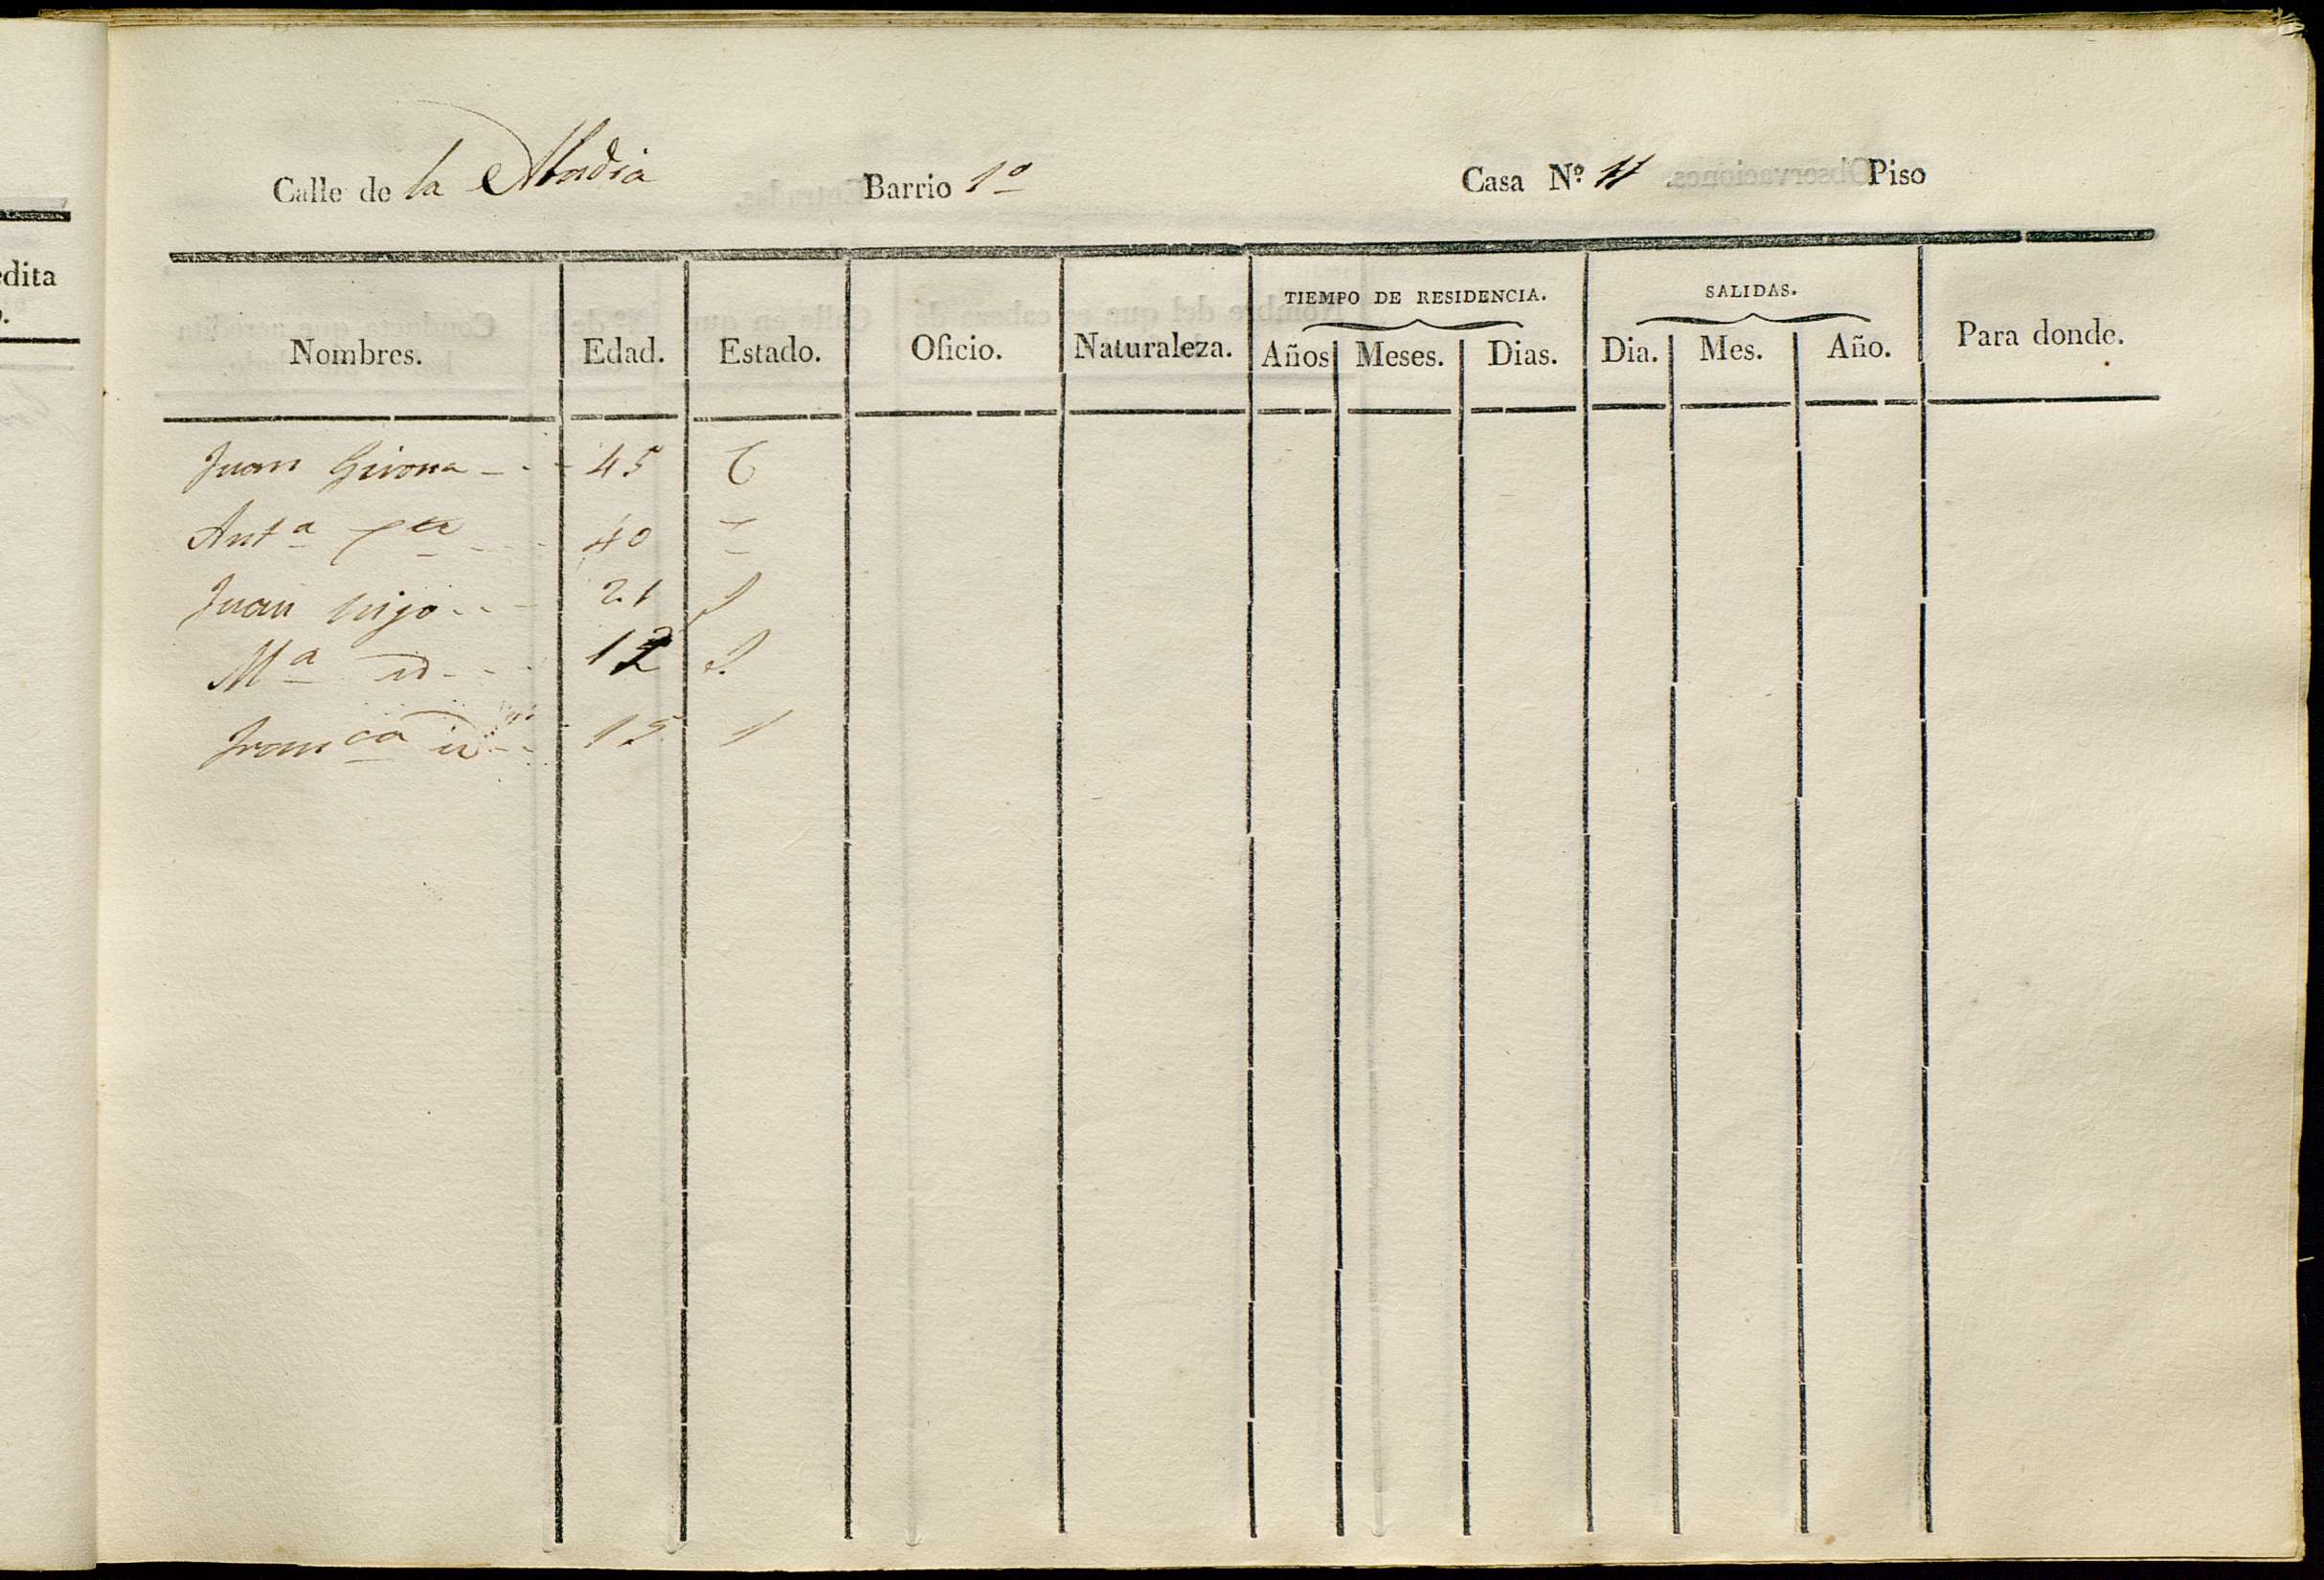 edita
Calle de la Abadia Barrio 1º Casa Nº 11 Piso
TIEMPO DE RESIDENCIA. SALIDAS.
Nombres. Edad. Estado. Oficio. Naturaleza. Años Meses. Dias. Dia. Mes. Año. Para donde.
Juan Girona - - - 45 C
Antª - - 40
Juan hijo - - - 21 S
Mª id - - - 12 S
Franca id - - 15 S